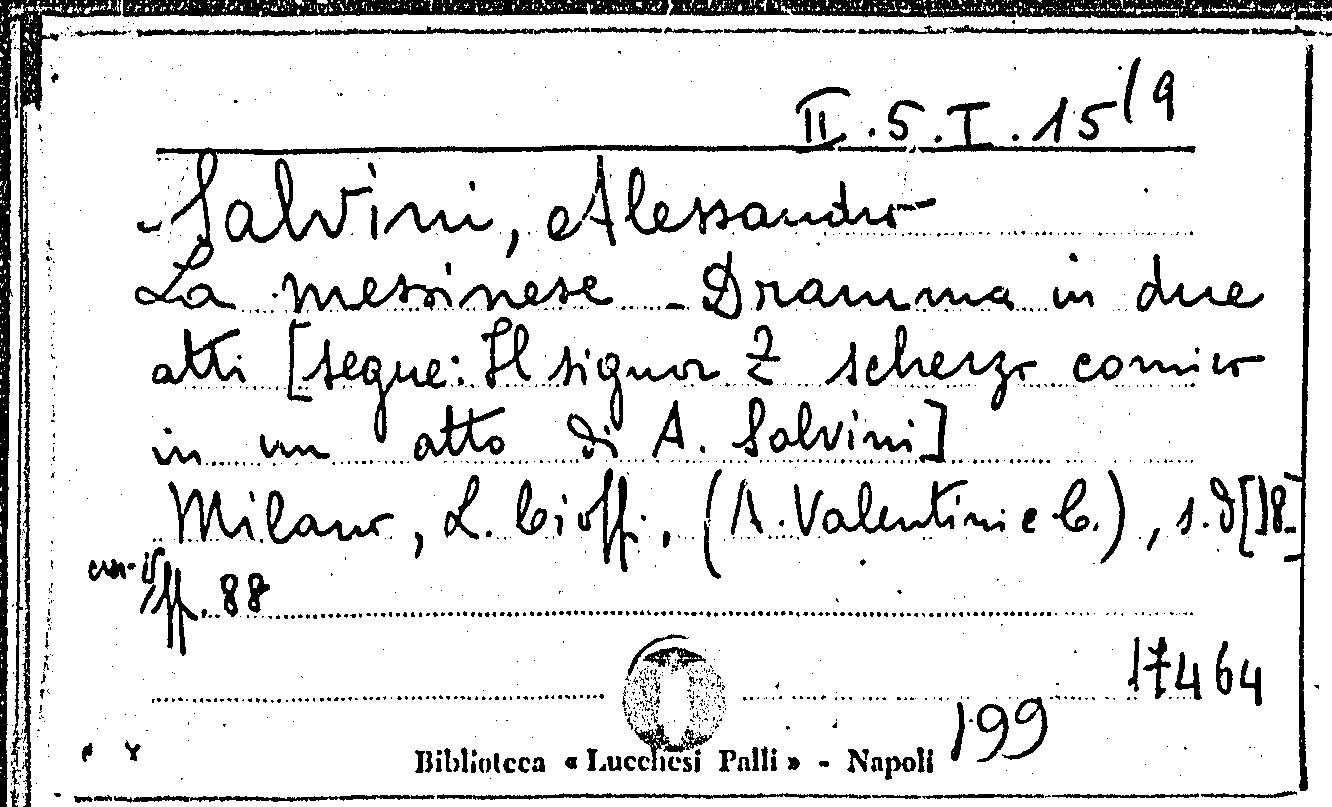 II.5.I.15/9
Salvini, Alessandro
La messinese - Dramma in due
atti [segue: Il signor Z scherzo comico
in un atto di A. Salvini]
Milano, L. Cioffi, (A. Valentini e C.), s.d[18-]
in 16
ff. 88
17464
199
Biblioteca « Lucchesi Palli » - Napoli